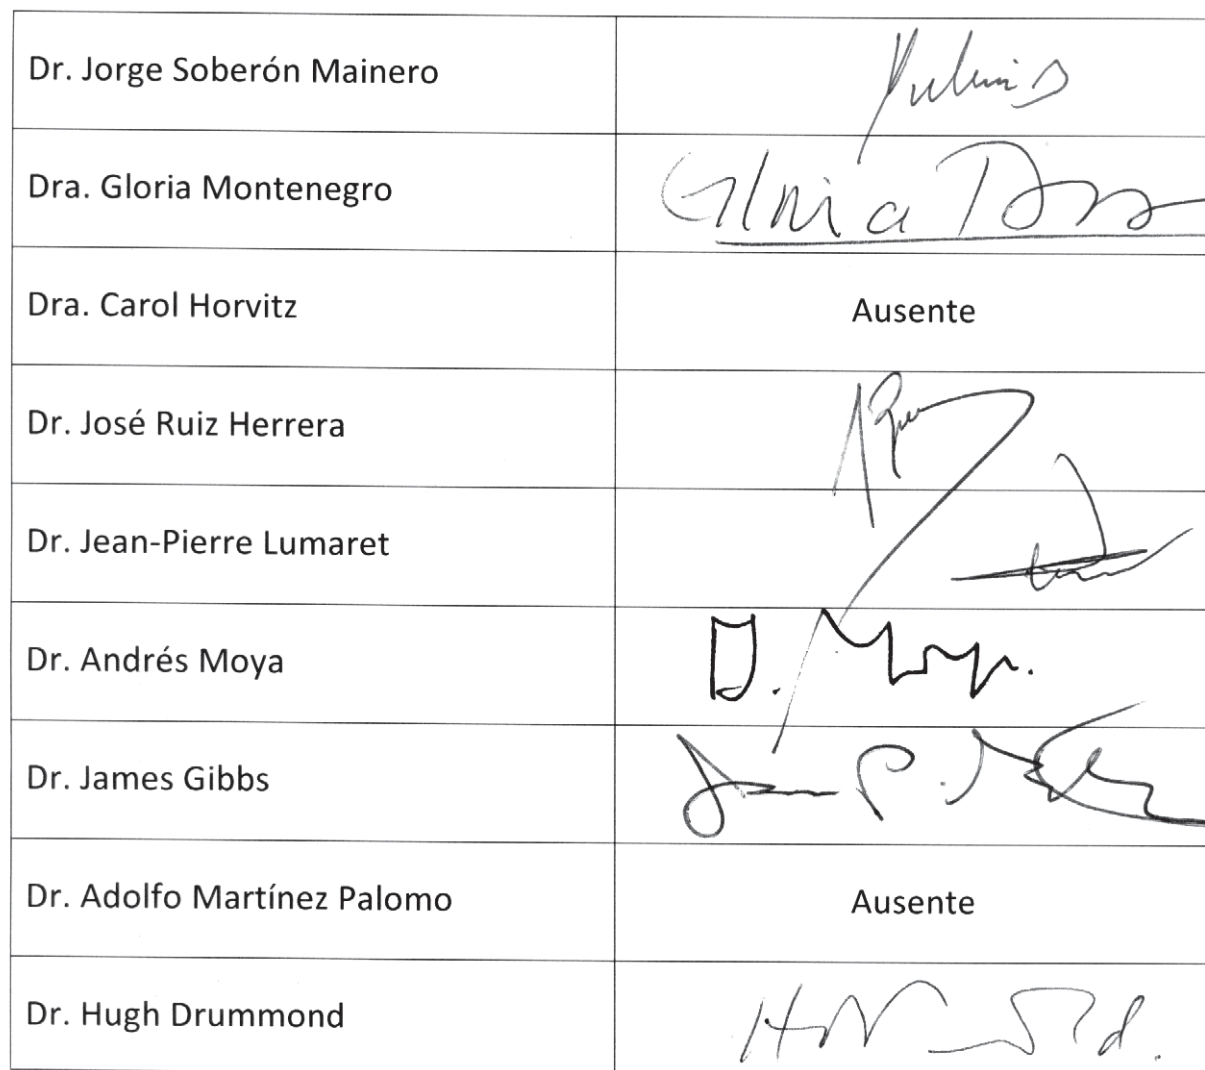 Dr. Jorge Soberón Mainero
Dra. Gloria Montenegro
Gloria
Dra. Carol Horvitz
Ausente
Dr. José Ruiz Herrera
Dr. Jean-Pierre Lumaret
Dr. Andrés Moya
D. Moya.
Dr. James Gibbs
Dr. Adolfo Martínez Palomo
Ausente
Dr. Hugh Drummond